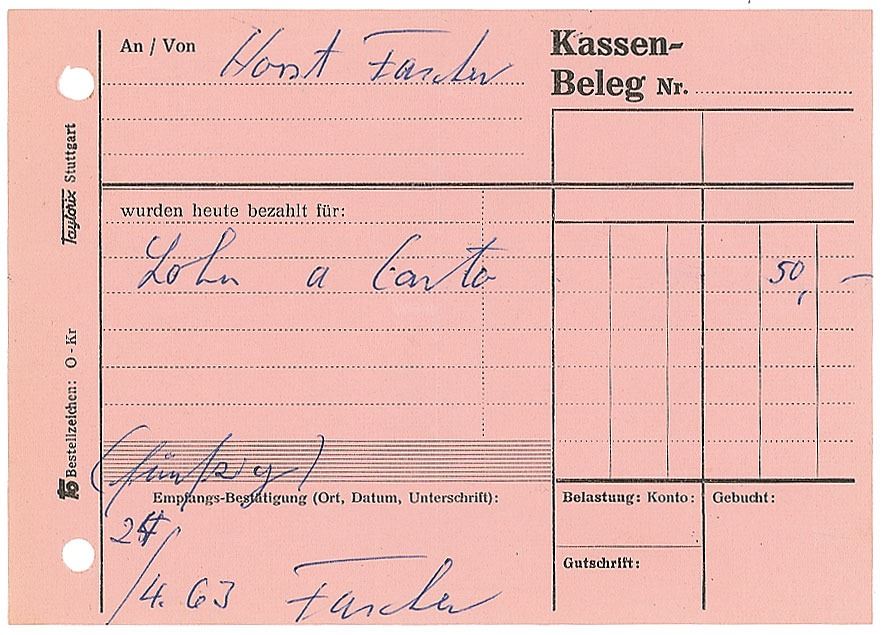 An / Von Horst Fascher
Kassen-
Beleg Nr.
wurden heute bezahlt für:
Lohn a Conto 50,—
(fünfzig)
Empfangs-Bestätigung (Ort, Datum, Unterschrift):
24
/4. 63 Fascher
Belastung: Konto:
Gebucht:
Gutschrift:
Taylorix Stuttgart
Bestellzeichen: O - Kr